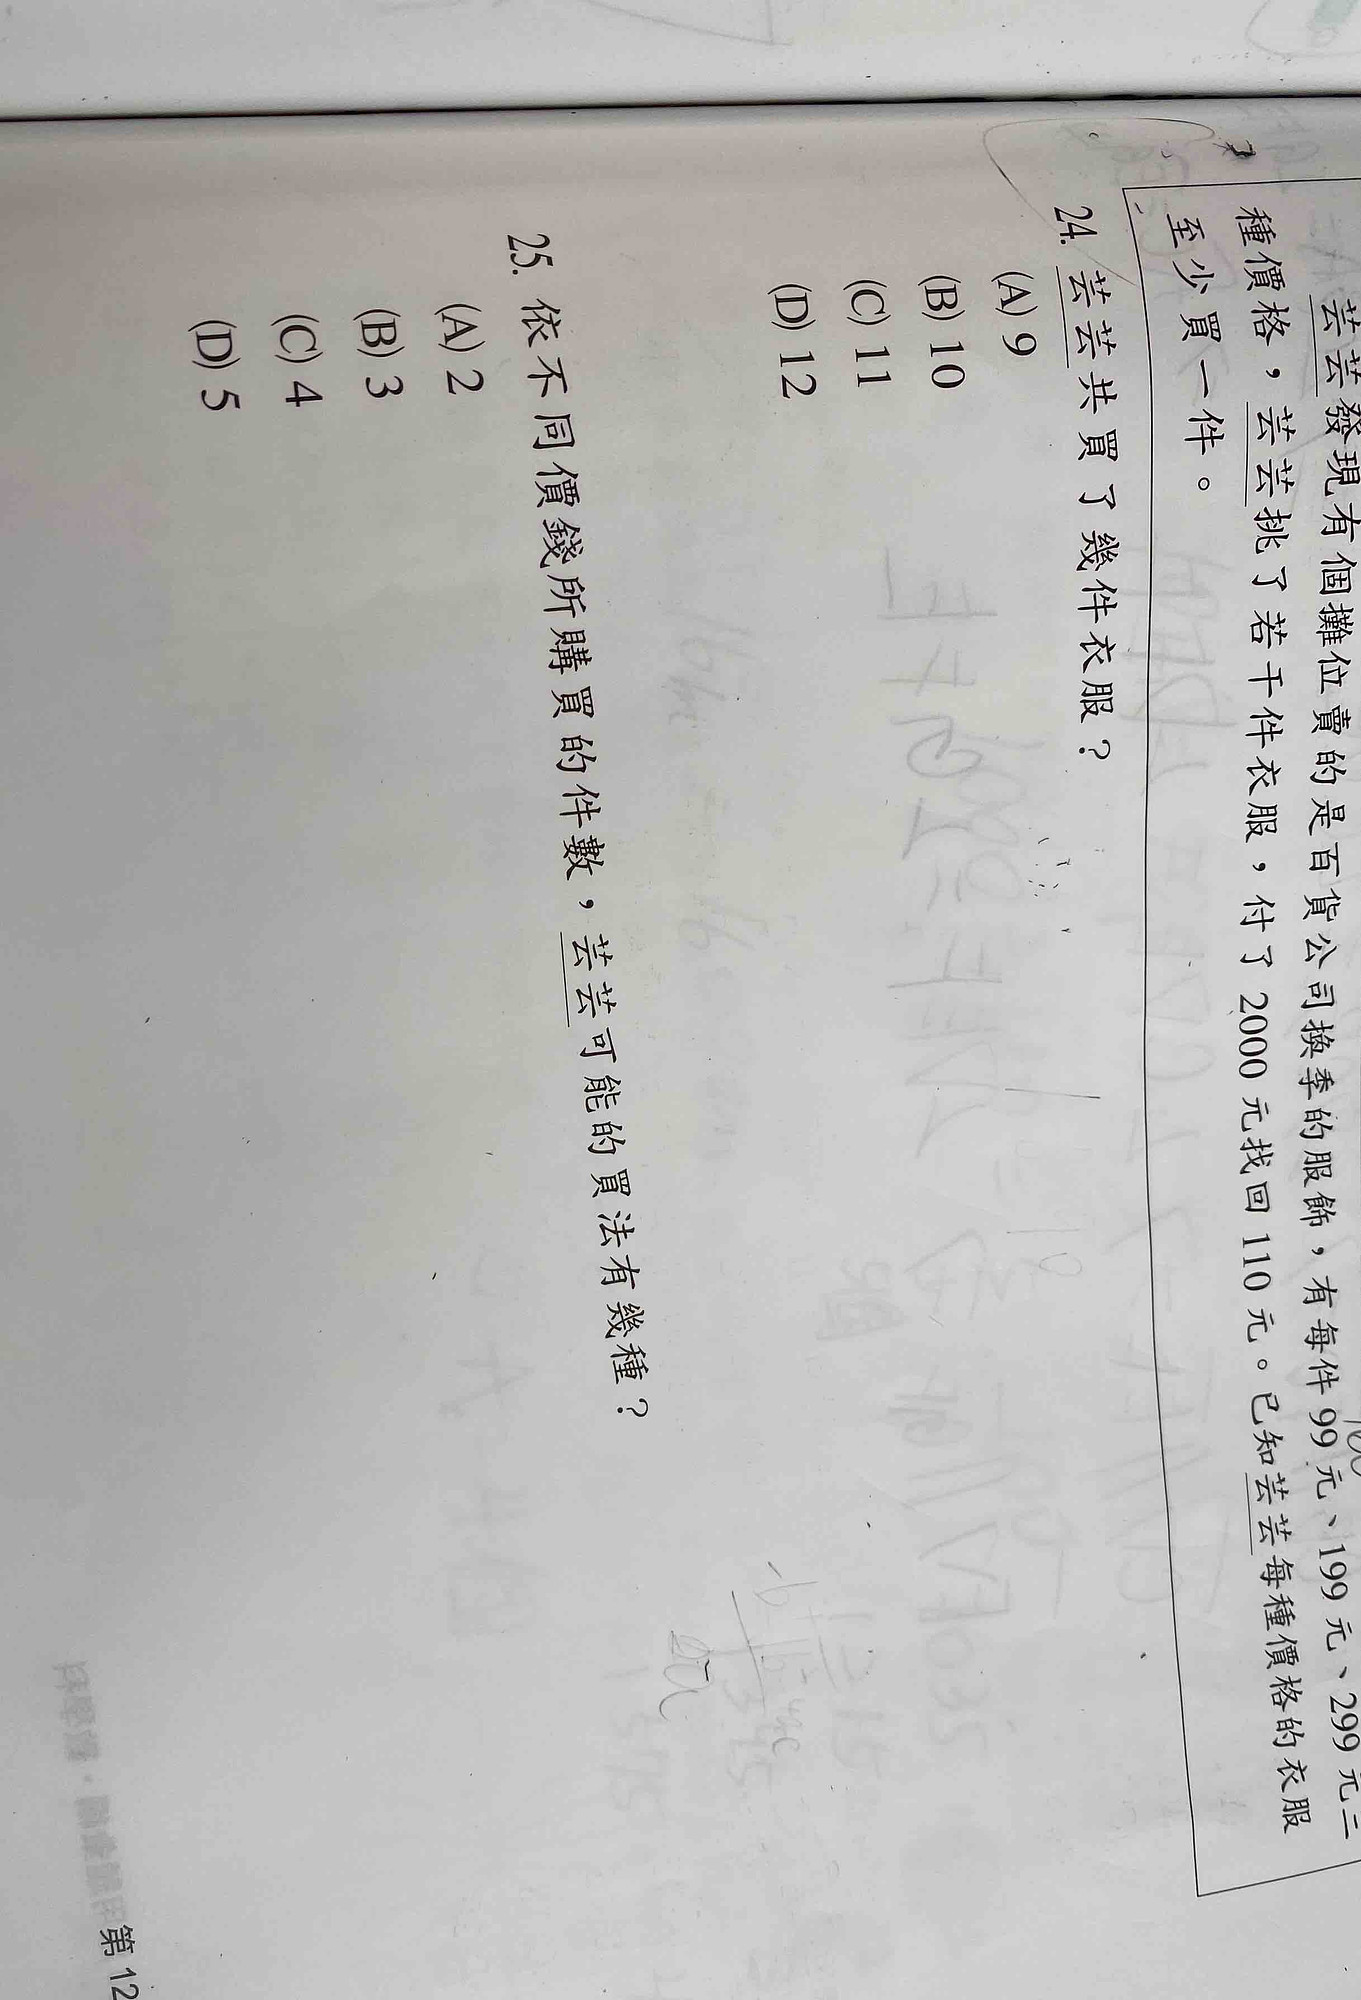 芸芸發現有個攤位賣的是百貨公司換季的服飾，有每件 99 元、199 元、299 元三
種價格，芸芸挑了若干件衣服，付了 2000 元找回 110 元。已知芸芸每種價格的衣服
至少買一件。
24. 芸芸共買了幾件衣服？
(A) 9
(B) 10
(C) 11
(D) 12
25. 依不同價錢所購買的件數，芸芸可能的買法有幾種？
(A) 2
(B) 3
(C) 4
(D) 5
第 12